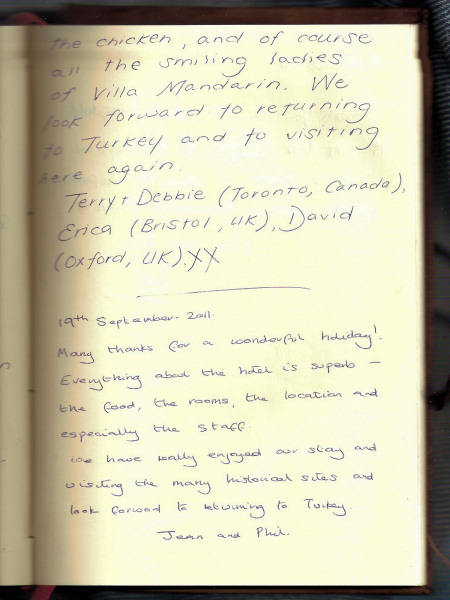 the chicken, and of course
all the smiling ladies
of Villa Mandarin. We
look forward to returning
to Turkey and to visiting
here again.
Terry + Debbie (Toronto, Canada),
Erica (Bristol, UK), David
(Oxford, UK). XX
19th September. 2011.
Many thanks for a wonderful holiday!
Everything about the hotel is superb –
the food, the rooms, the location and
especially the staff.
We have really enjoyed our stay and
visiting the many historical sites and
look forward to returning to Turkey.
Jean and Phil.